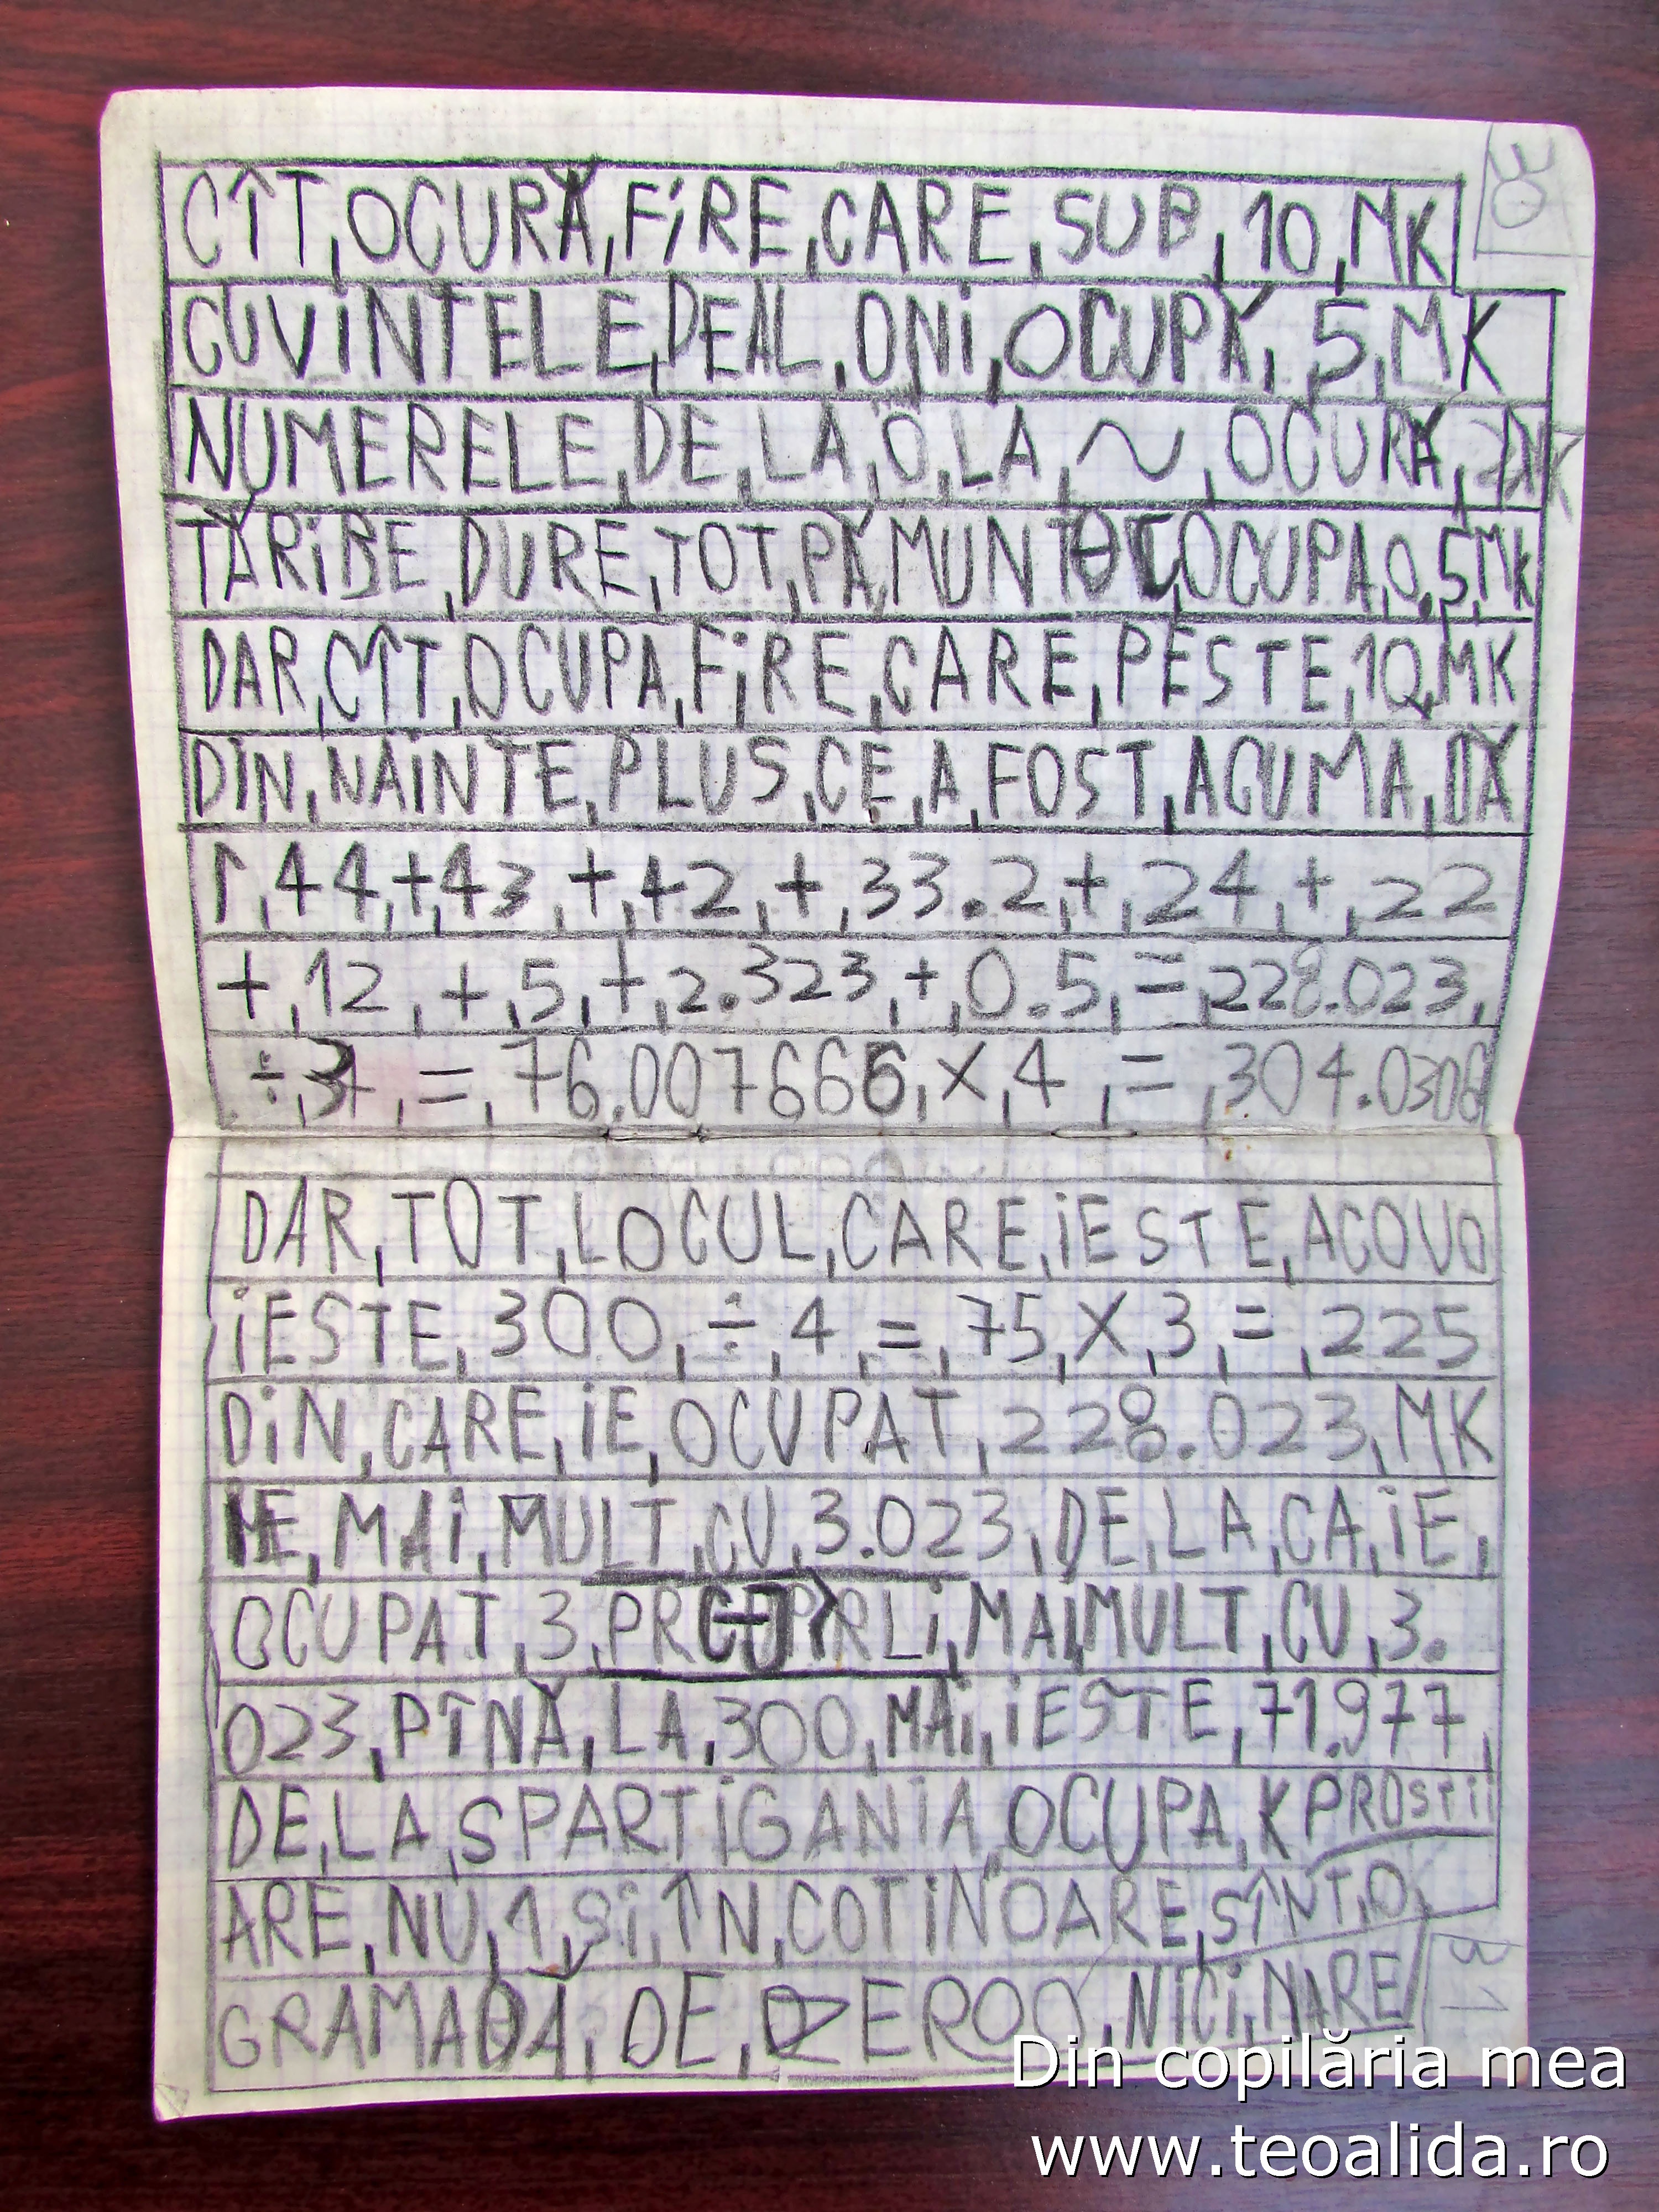 CÎT,OCUPĂ,FiRE,CARE,SUB,10,MK
CUVINTELE,DEAL,ONi,OCUPĂ,5,MK
NUMERELE,DE,LA,0,LA,~,OCUPĂ,2MK
TĂRiBE,DURE,TOT,PĂMUNT,OCUPA,0.5,MK
DAR,CÎT,OCUPA,FiRE,CARE,PESTE,10,MK
DIN,NAiNTE,PLUS,CE,A,FOST,ACUMA,DĂ
1,44+,43,+,42,+,33.2,+,24,+,22
+,12,+,5,+,2.323,+,0.5,=,228.023,
÷,3,=,76.007666,×,4,=,304.0306
DAR,TOT,LOCUL,CARE,iESTE,ACOVO
iESTE,300,÷,4,=,75,×,3,=,225
DiN,CARE,iE,OCUPAT,228.023,MK
iE,MAi,MULT,CU,3.023,DE,LA,CA,iE,
OCUPAT,3,MAi,MULT,CU,3.
023,PÎNĂ,LA,300,MAi,iESTE,71.977,
DE,LA,SPARTiGANiA,OCUPA,K PROSTii
ARE,NU,1,Și,ÎN,COTiNOARE,SÎNT,O,
GRAMADĂ,DE,ZEROO,NiCi,NARE
Din copilăria mea
www.teoalida.ro